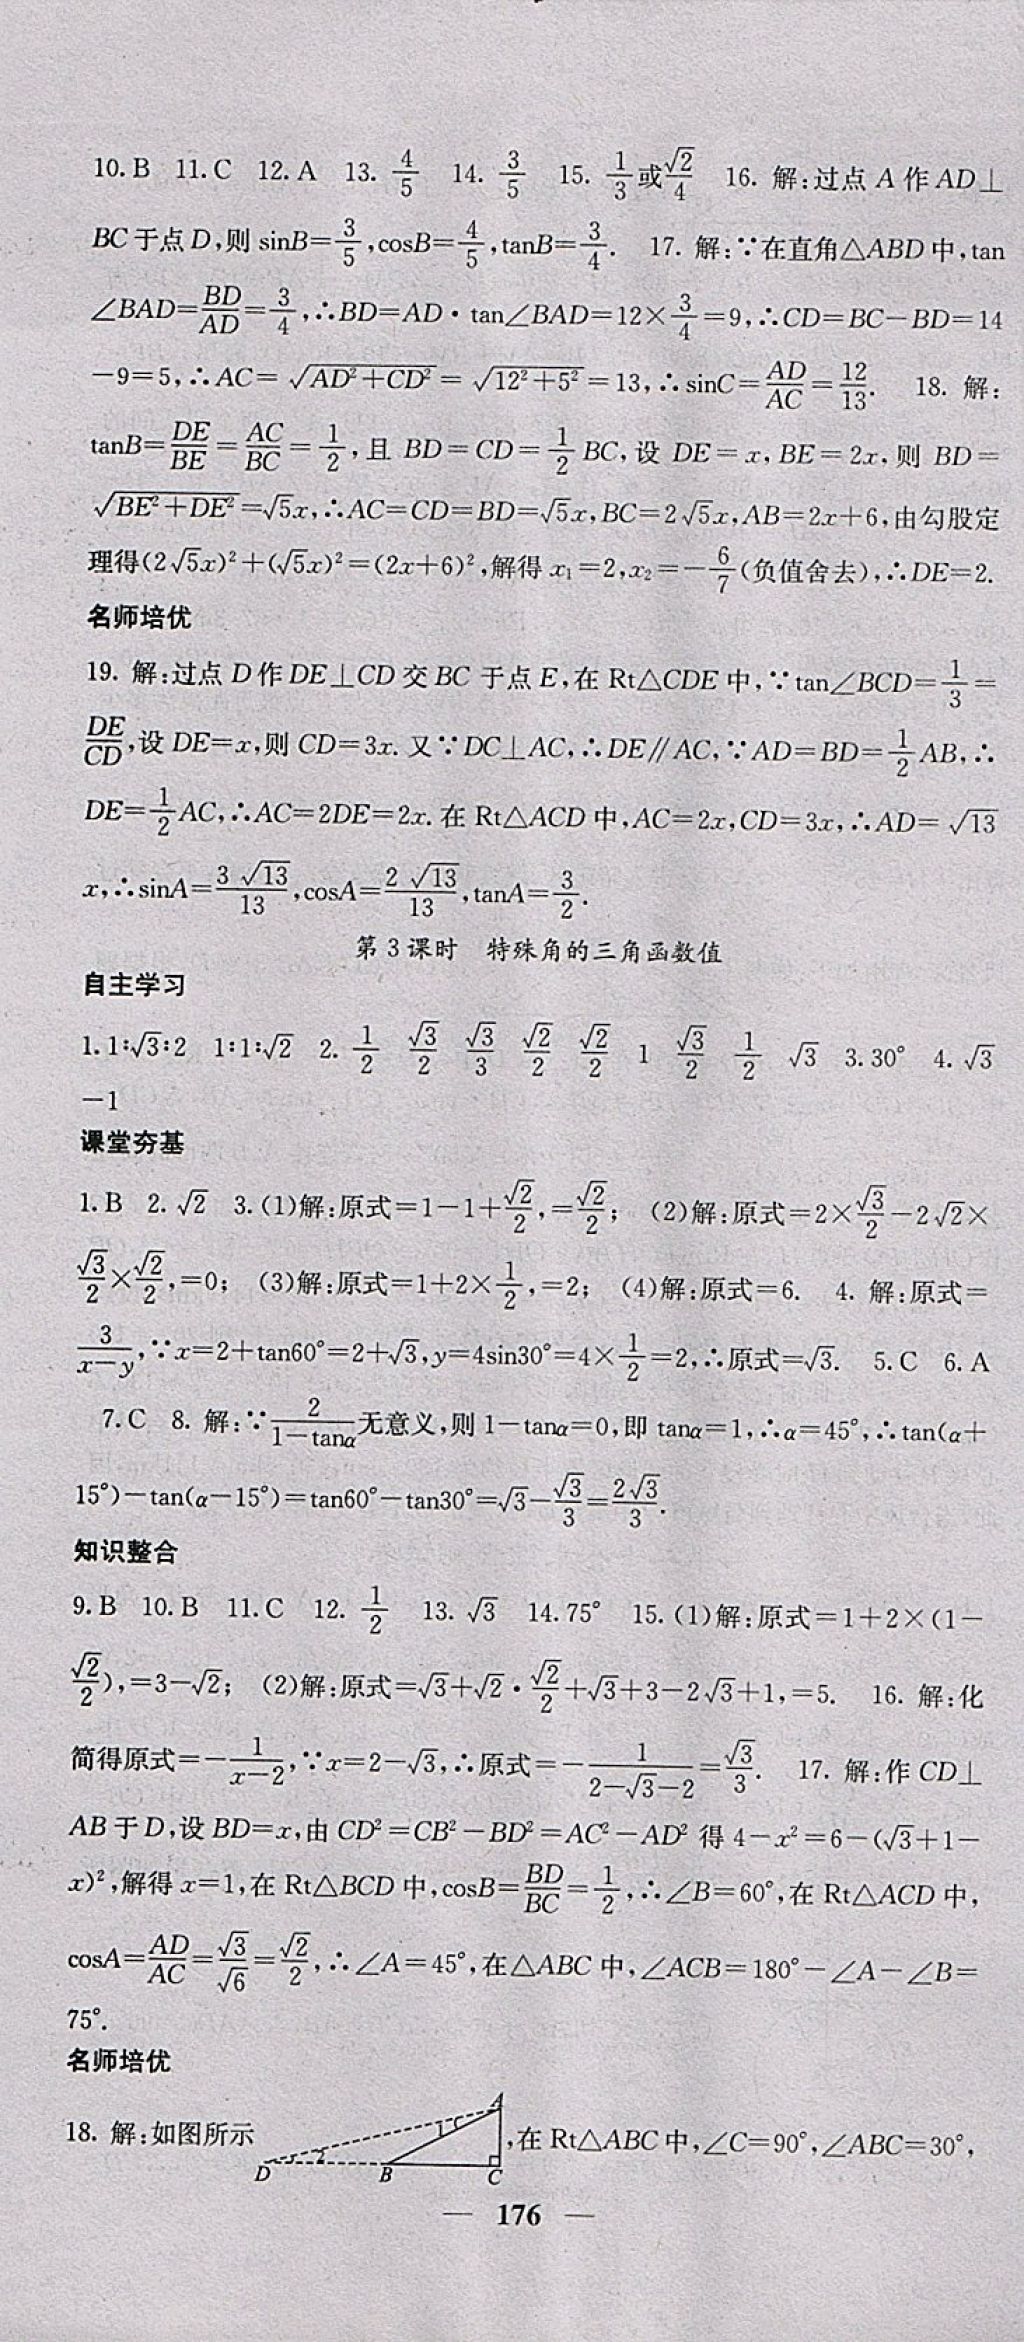 10. B 11. C 12. A 13. 4/5 14. 3/5 15. 1/3或√2/4 16. 解:过点 A 作 AD⊥
BC 于点 D,则 sinB=3/5,cosB=4/5,tanB=3/4. 17. 解:∵在直角△ABD 中,tan
∠BAD=BD/AD=3/4,∴BD=AD·tan∠BAD=12×3/4=9,∴CD=BC−BD=14
−9=5,∴AC=√(AD²+CD²)=√(12²+5²)=13,∴sinC=AD/AC=12/13. 18. 解:
tanB=DE/BE=AC/BC=1/2,且 BD=CD=1/2BC,设 DE=x,BE=2x,则 BD=
√(BE²+DE²)=√5x,∴AC=CD=BD=√5x,BC=2√5x,AB=2x+6,由勾股定
理得(2√5x)²+(√5x)²=(2x+6)²,解得 x₁=2,x₂=−6/7(负值舍去),∴DE=2.
名师培优
19. 解:过点 D 作 DE⊥CD 交 BC 于点 E,在 Rt△CDE 中,∵tan∠BCD=1/3=
DE/CD,设 DE=x,则 CD=3x. 又∵DC⊥AC,∴DE∥AC,∵AD=BD=1/2AB,∴
DE=1/2AC,∴AC=2DE=2x. 在 Rt△ACD 中,AC=2x,CD=3x,∴AD=√13
x,∴sinA=3√13/13,cosA=2√13/13,tanA=3/2.
第 3 课时 特殊角的三角函数值
自主学习
1. 1∶√3∶2 1∶1∶√2 2. 1/2 √3/2 √3/3 √2/2 √2/2 1 √3/2 1/2 √3 3. 30° 4. √3
−1
课堂夯基
1. B 2. √2 3. (1)解:原式=1−1+√2/2,=√2/2; (2)解:原式=2×√3/2−2√2×
√3/2×√2/2,=0; (3)解:原式=1+2×1/2,=2; (4)解:原式=6. 4. 解:原式=
3/(x−y),∵x=2+tan60°=2+√3,y=4sin30°=4×1/2=2,∴原式=√3. 5. C 6. A
7. C 8. 解:∵2/(1−tanα)无意义,则 1−tanα=0,即 tanα=1,∴α=45°,∴tan(α+
15°)−tan(α−15°)=tan60°−tan30°=√3−√3/3=2√3/3.
知识整合
9. B 10. B 11. C 12. 1/2 13. √3 14. 75° 15. (1)解:原式=1+2×(1−
√2/2),=3−√2; (2)解:原式=√3+√2·√2/2+√3+3−2√3+1,=5. 16. 解:化
简得原式=−1/(x−2),∵x=2−√3,∴原式=−1/(2−√3−2)=√3/3. 17. 解:作 CD⊥
AB 于 D,设 BD=x,由 CD²=CB²−BD²=AC²−AD² 得 4−x²=6−(√3+1−
x)²,解得 x=1,在 Rt△BCD 中,cosB=BD/BC=1/2,∴∠B=60°,在 Rt△ACD 中,
cosA=AD/AC=√3/√6=√2/2,∴∠A=45°,在△ABC 中,∠ACB=180°−∠A−∠B=
75°.
名师培优
18. 解:如图所示 A 1 D 2 B C ,在 Rt△ABC 中,∠C=90°,∠ABC=30°,
— 176 —